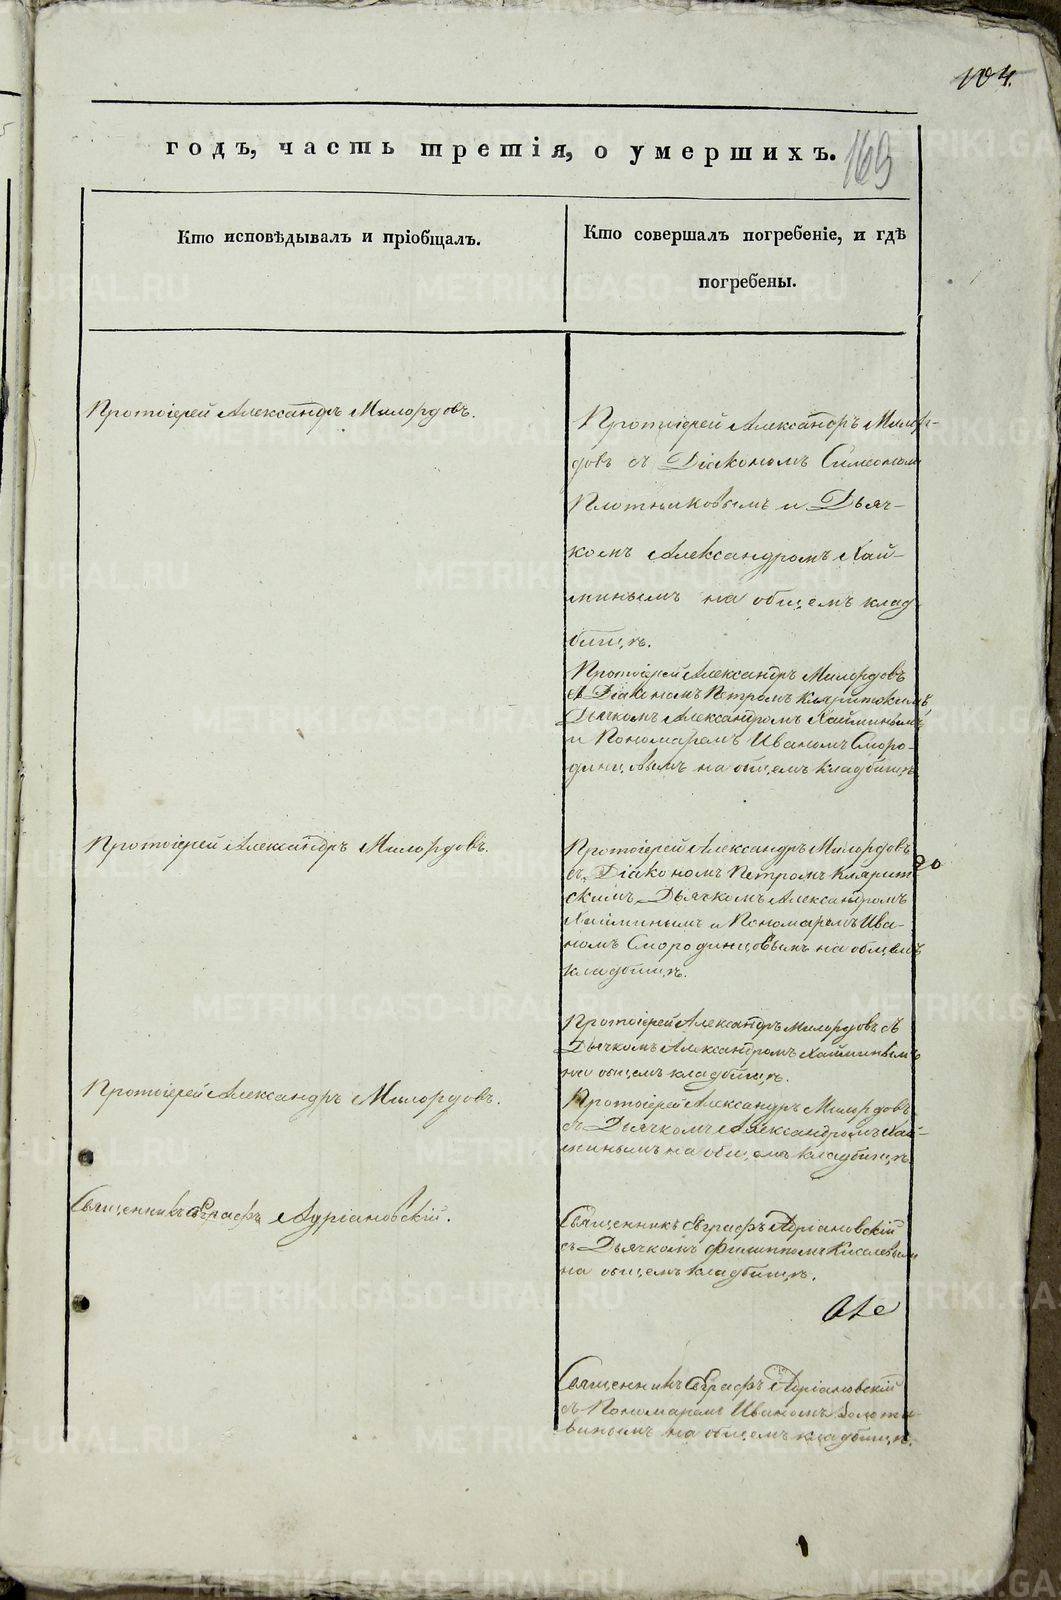 104.
годъ, часть третія, о умершихъ.
169
Кто исповѣдывалъ и пріобщалъ.
Кто совершалъ погребеніе, и гдѣ
погребены.
Протоіерей Александръ Милордовъ.
Протоіерей Александръ Милор-
довъ съ Діакономъ Симеономъ
Плотниковымъ и Дьяч-
комъ Александромъ Хай-
минымъ на общемъ клад
бищѣ.
Протоіерей Александръ Милордовъ
съ Діакономъ Петромъ
Дьячкомъ Александромъ Хайминымъ
и Пономаремъ Иваномъ Сморо-
динцовымъ на общемъ кладбищѣ
Протоіерей Александръ Милордовъ.
Протоіерей Александръ Милордовъ
съ Діакономъ Петромъ
скимъ Дьячкомъ Александромъ
Хайминымъ и Пономаремъ Ива-
номъ Смородинцовымъ на общемъ
кладбищѣ.
20
Протоіерей Александръ Милордовъ съ
Дьячкомъ Александромъ Хайминымъ
на общемъ кладбищѣ.
Протоіерей Александръ Милордовъ.
Протоіерей Александръ Милордовъ
съ Дьячкомъ Александромъ Хай-
минымъ на общемъ кладбищѣ.
Священникъ Евграфъ Адріановскій.
Священникъ Евграфъ Адріановскій
съ Дьячкомъ Филиппомъ Киселевымъ
на общемъ кладбищѣ.
Священникъ Евграфъ Адріановскій
съ Пономаремъ Иваномъ Золота-
винымъ на общемъ кладбищѣ.
METRIKI.GASO-URAL.RU